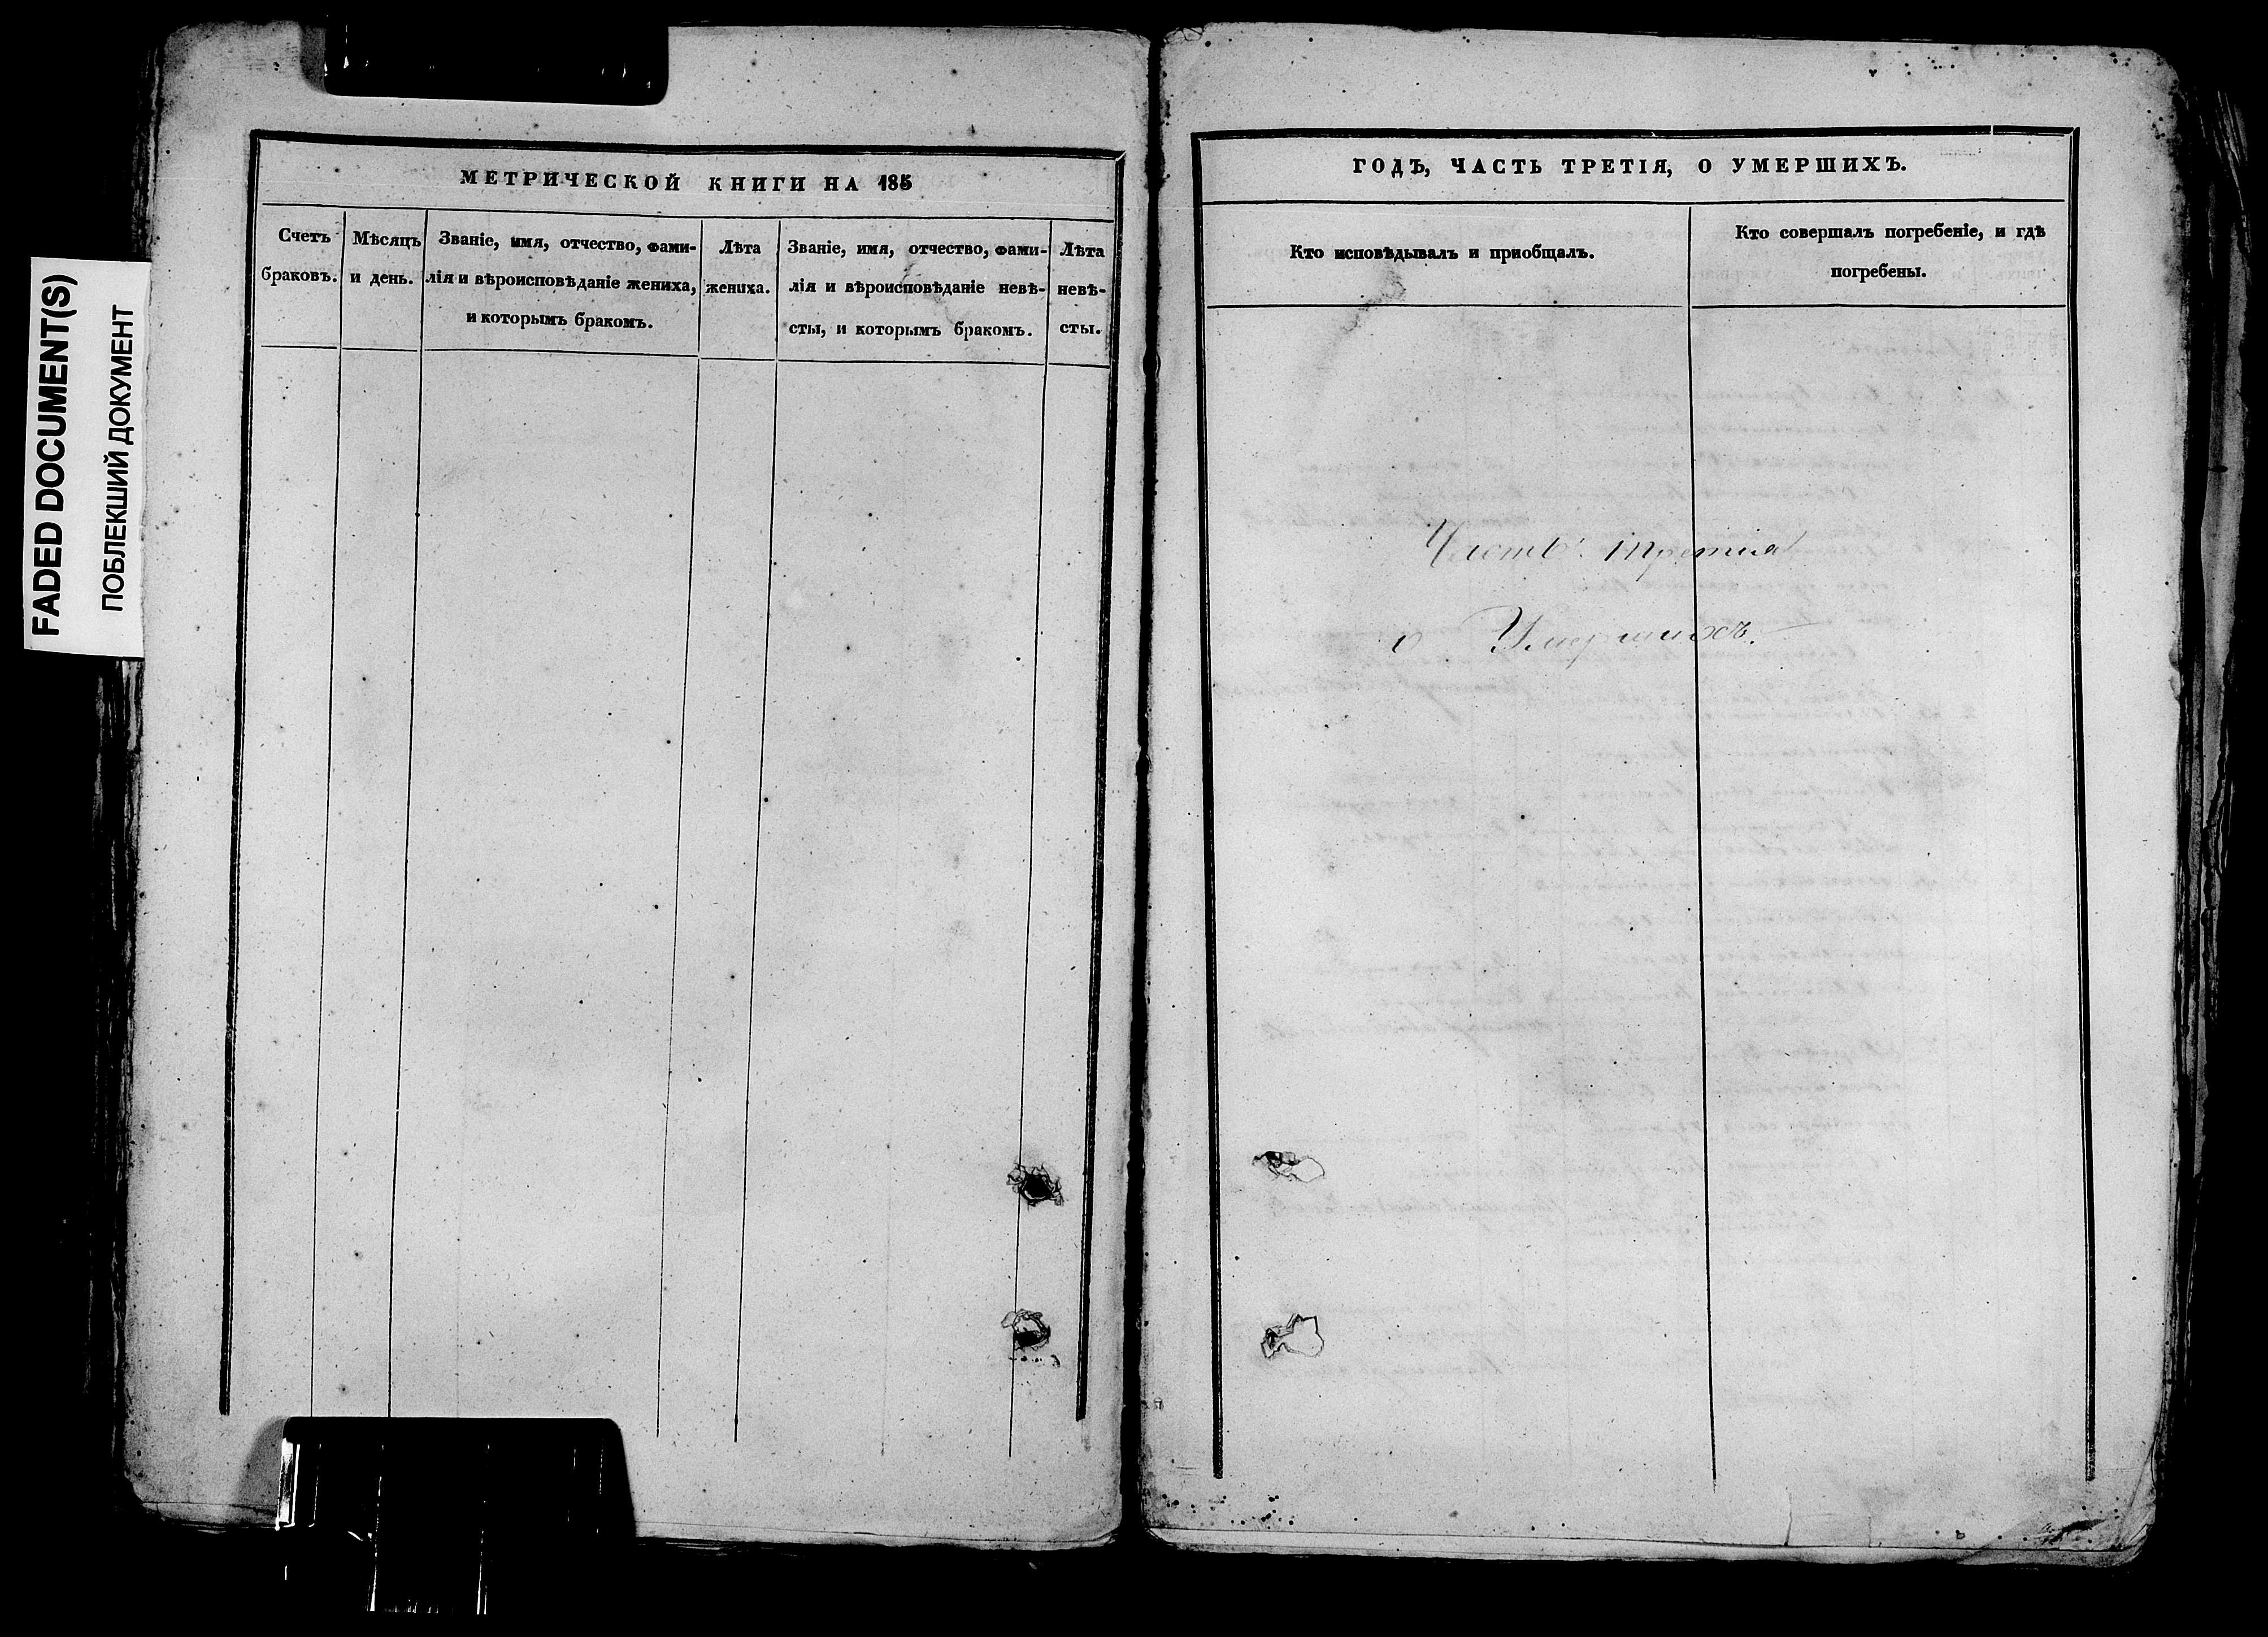 FADED DOCUMENT(S)
ПОБЛЕКШИЙ ДОКУМЕНТ
МЕТРИЧЕСКОЙ КНИГИ НА 185
Счетъ
браковъ.
Мѣсяцъ
и день.
Званіе, имя, отчество, фами-
лія и вѣроисповѣданіе жениха,
и которымъ бракомъ.
Лѣта
жениха.
Званіе, имя, отчество, фами-
лія и вѣроисповѣданіе невѣ-
сты, и которымъ бракомъ.
Лѣта
невѣ-
сты.
ГОДЪ, ЧАСТЬ ТРЕТІЯ, О УМЕРШИХЪ.
Кто исповѣдывалъ и приобщалъ.
Кто совершалъ погребеніе, и гдѣ
погребены.
Часть третія
о Умершихъ.